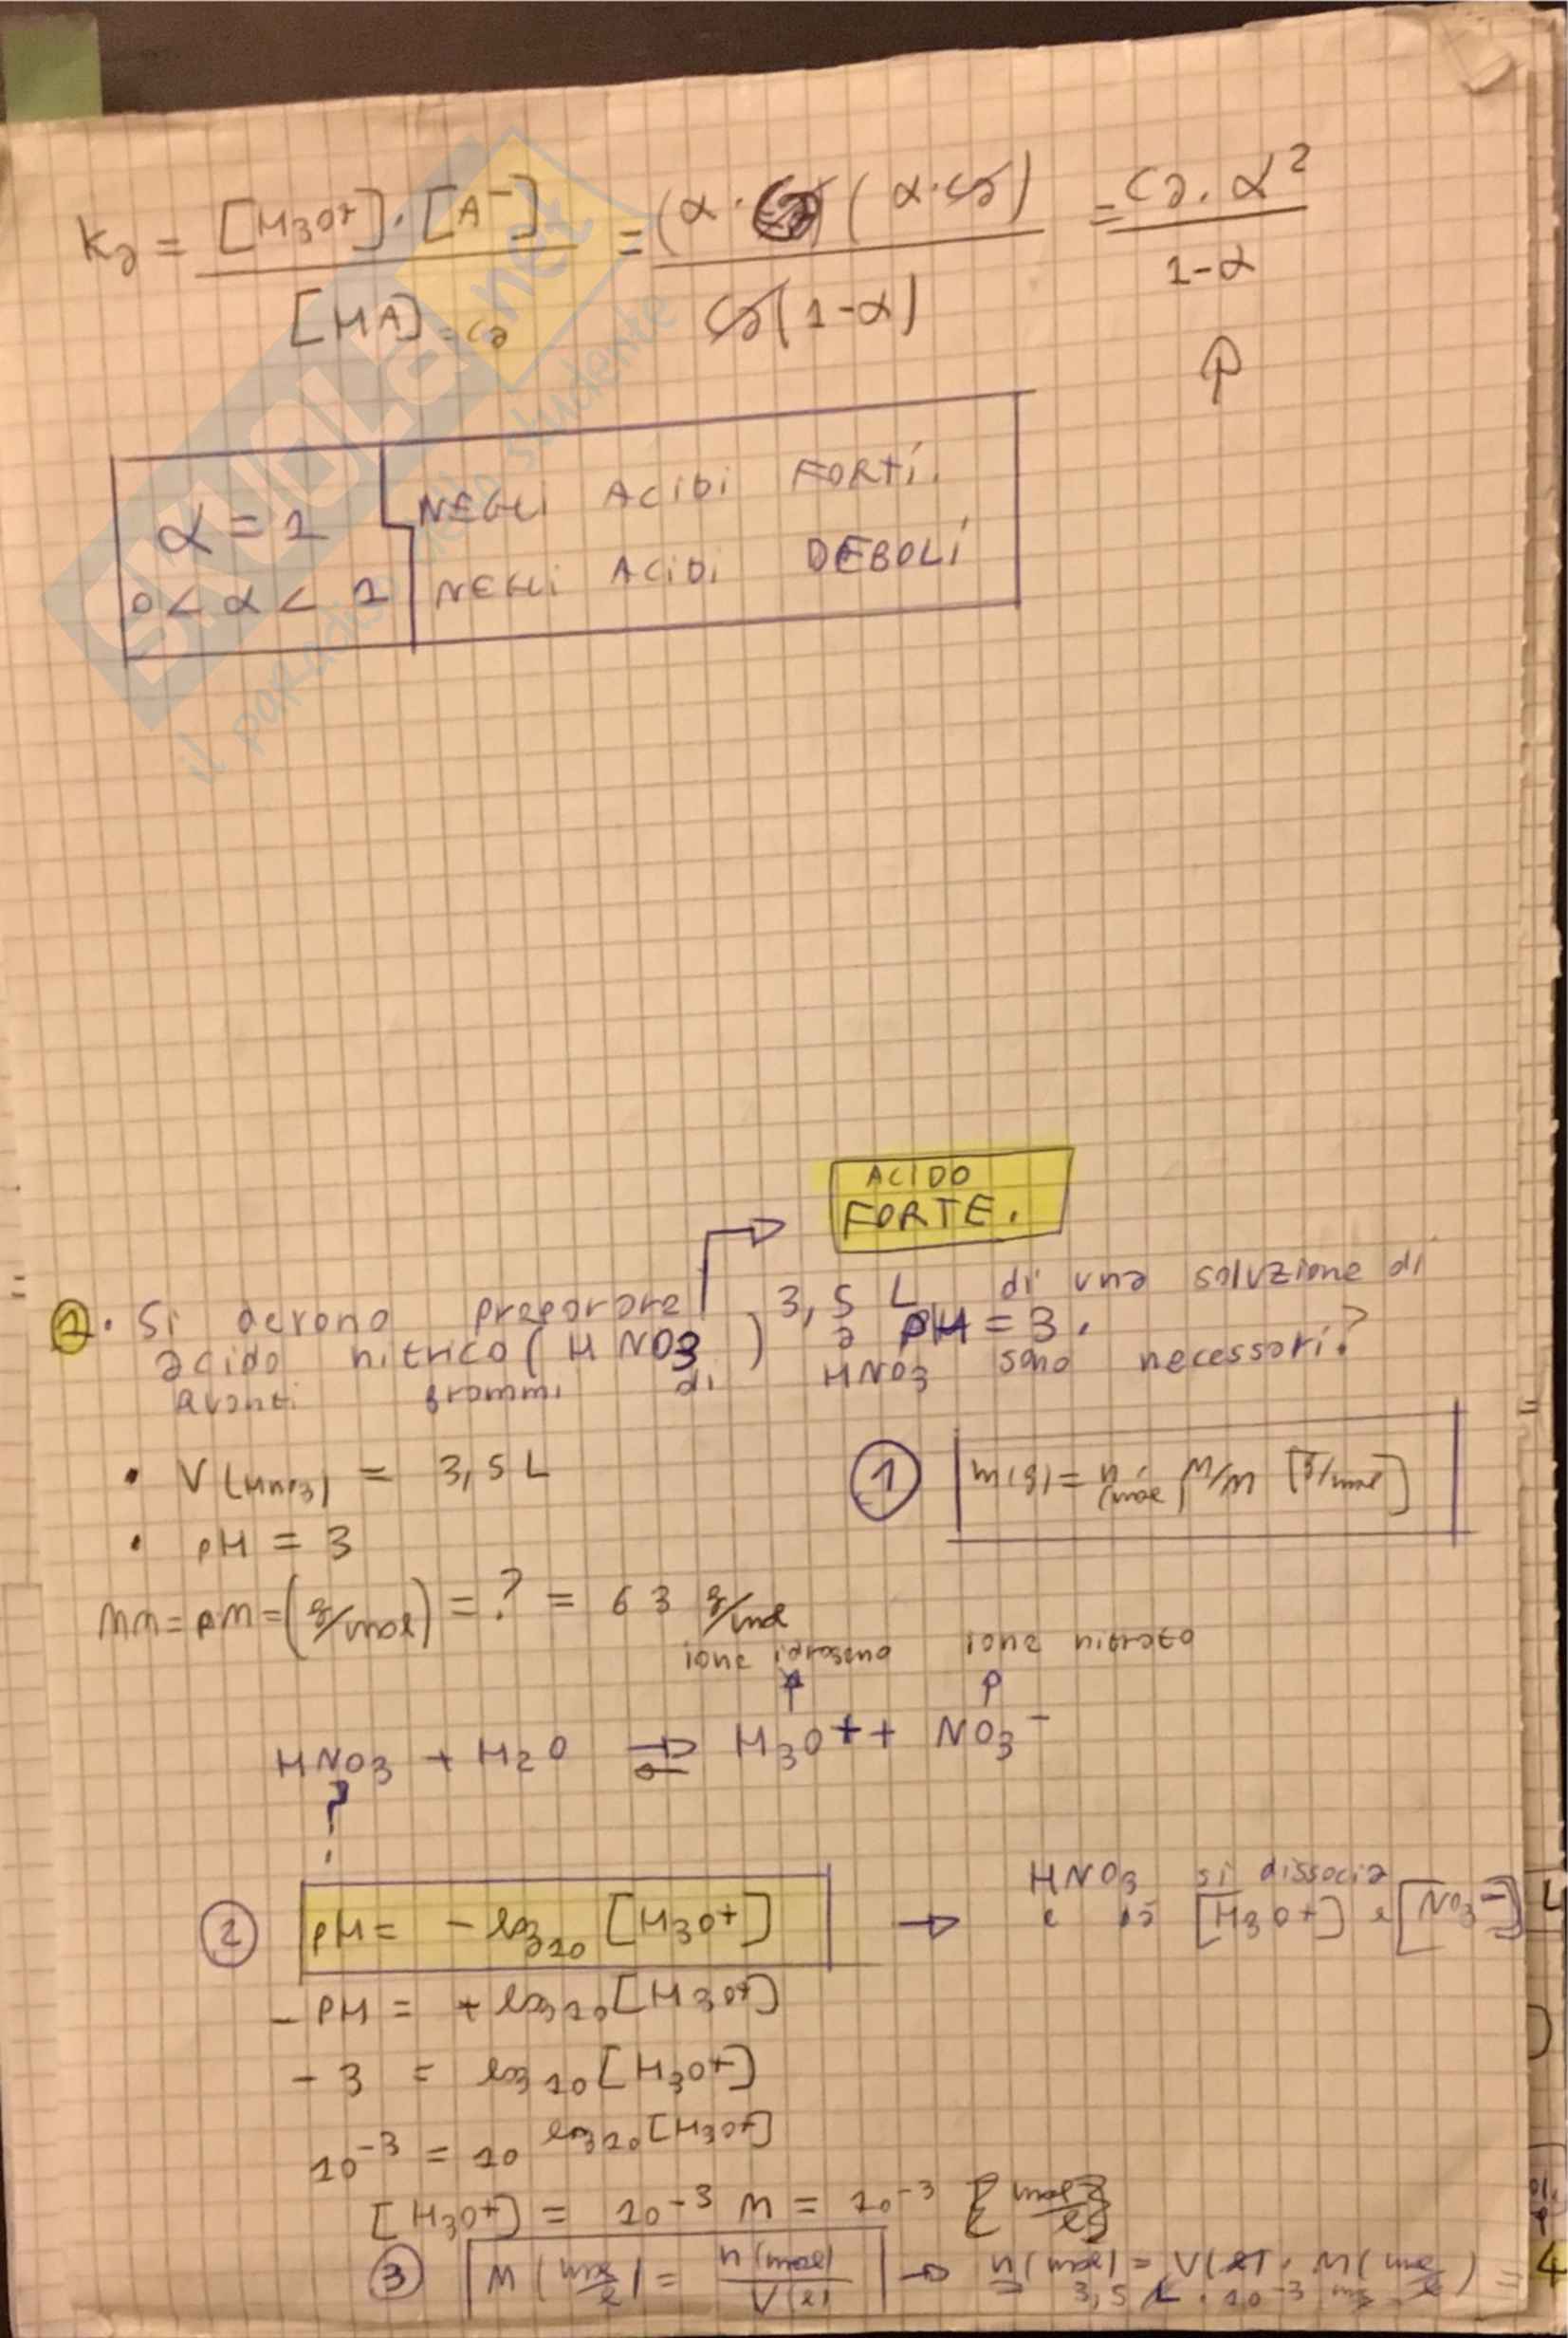 Ka = [H3O+]·[A-] / [HA] = Ca = (α· (α·Ca) / Ca(1-α) = Ca·α² / 1-α
SKUOLA.net
il paradiso dello studente
α = 1 NEGLI ACIDI FORTI.
0 < α < 1 NEGLI ACIDI DEBOLI
ACIDO
FORTE.
1. Si devono preparare 3,5 L di una soluzione di
acido nitrico (HNO3) a pH = 3.
quanti grammi di HNO3 sono necessari?
• V(HNO3) = 3,5 L
① m(g) = n(mol · M/M [g/mol]
• pH = 3
MM = PM = (g/mol) = ? = 63 g/mol
ione idrogeno ione nitrato
HNO3 + H2O ⇌ H3O+ + NO3-
?
② pH = - log10 [H3O+] → HNO3 si dissocia
e dà [H3O+] e [NO3-]
- pH = + log10 [H3O+]
- 3 = log10 [H3O+]
10-3 = 10 log10 [H3O+]
[H3O+] = 10-3 M = 10-3 [mol/l]
③ M (mol/l) = n(mol) / V(l) → n(mol) = V(l) · M(mol/l) =
3,5 L · 10-3 mol/l